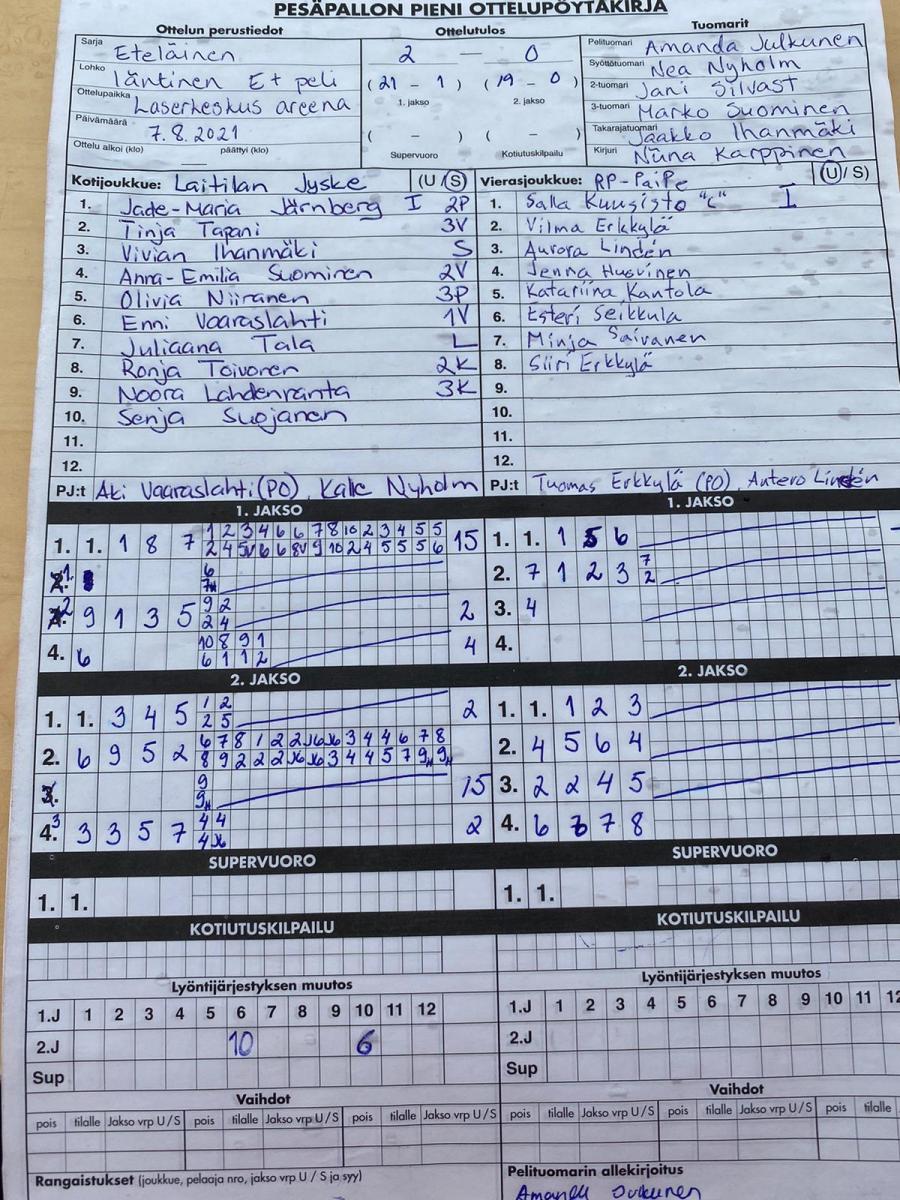 PESÄPALLON PIENI OTTELUPÖYTÄKIRJA
Ottelun perustiedot
Sarja Eteläinen
Lohko läntinen E+ peli
Ottelupaikka Laserkeskus areena
Päivämäärä 7.8.2021
Ottelu alkoi (klo) — päättyi (klo)
Ottelutulos
2 — 0
(21 - 1) (19 - 0)
1. jakso 2. jakso
( - ) ( - )
Supervuoro Kotiutuskilpailu
Tuomarit
Pelituomari Amanda Julkunen
Syöttötuomari Nea Nyholm
2-tuomari Jani Silvast
3-tuomari Marko Suominen
Takarajatuomari Jaakko Ihanmäki
Kirjuri Niina Karppinen
Kotijoukkue: Laitilan Jyske (U/S)
1. Jade-Maria Järnberg I 2P
2. Tinja Tapani 3V
3. Vivian Ihanmäki S
4. Anna-Emilia Suominen 2V
5. Olivia Niiranen 3P
6. Enni Vaaraslahti 1V
7. Juliaana Tala L
8. Ronja Toivonen 2K
9. Noora Lahdenranta 3K
10. Senja Suojanen
11.
12.
PJ:t Aki Vaaraslahti (PO), Kalle Nyholm
Vierasjoukkue: RP-PaiPe (U/S)
1. Salla Kuusisto "C" I
2. Vilma Erkkylä
3. Aurora Lindén
4. Jenna Husvinen
5. Katariina Kantola
6. Esteri Seikkula
7. Minja Saivanen
8. Siiri Erkkylä
9.
10.
11.
12.
PJ:t Tuomas Erkkylä (PO), Antero Lindén
1. JAKSO
1. 1. 1 8 7 1 2 3 4 6 6 7 8 10 2 3 4 5 5 15
2 4 5V 6 6 8V 9 10 2 4 5 5 5 6
1
6
2 9 1 3 5 9 2 2
2 4
4. 6 10 8 9 1 4
6 1 1 2
1. JAKSO
1. 1. 1 5 6
2. 7 1 2 3 7
2
3. 4
4.
2. JAKSO
1. 1. 3 4 5 1 2 2
2 5
2. 6 9 5 2 6 7 8 1 2 2 3 4 4 6 7 8
8 9 2 2 2 2 3 4 4 5 7
3. 9 15
4. 3 3 3 5 7 4 4 2
2. JAKSO
1. 1. 1 2 3
2. 4 5 6 4
3. 2 2 4 5
4. 6 7 8
SUPERVUORO
1. 1.
SUPERVUORO
1. 1.
KOTIUTUSKILPAILU
KOTIUTUSKILPAILU
Lyöntijärjestyksen muutos
1.J 1 2 3 4 5 6 7 8 9 10 11 12
2.J 10 6
Sup
Lyöntijärjestyksen muutos
1.J 1 2 3 4 5 6 7 8 9 10 11 12
2.J
Sup
Vaihdot
pois tilalle Jakso vrp U/S pois tilalle Jakso vrp U/S pois tilalle Jakso vrp U/S
Vaihdot
pois tilalle Jakso vrp U/S pois tilalle Jakso vrp U/S pois tilalle
Rangaistukset (joukkue, pelaaja nro, jakso vrp U / S ja syy)
Pelituomarin allekirjoitus